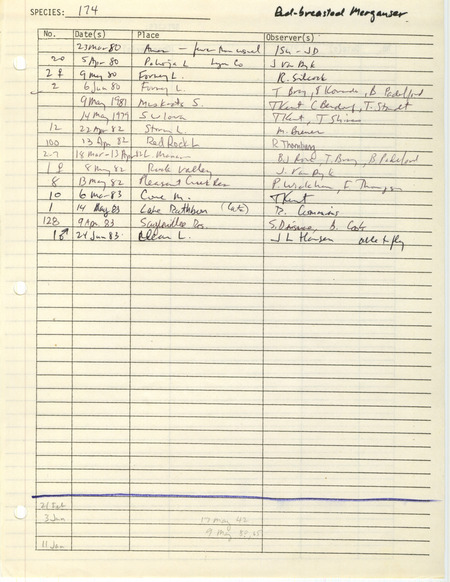 SPECIES: 174 Red-breasted Merganser
No. Date(s) Place Observer(s)
23 Mar 80 Amer -
20 5 Apr 80 Pabojа L. Lyon Co J. Van Dyk
2 ♀ 9 May 80 Forney L. R. Silcock
2 6 Jun 80 Forney L. T Bray, B Padelford
9 May 1981 S. T Kent C Bendorf, T. Staudt
14 May 1979 SW Iowa T Kent, T Shires
12 22 Apr 82 Storm L. M. Brewer
100 13 Apr 82 Red Rock L R Thornburg
2-7 18 Mar-13 Apr 82 L. Manawa B, T. Bray, B Padelford
1 ♀ 8 May 82 Rock Valley J. Van Dyk
8 13 May 82 Pleasant Creek Res P. Wickham, F Thompson
10 6 Mar 83 Cone M. T Kent
1 14 May 83 Lake Rathbun (Cate) R. Cummins
128 9 Apr 83 Saylorville Res. S. Dinsmore, B. Cate
1 ♂ 24 Jun 83 L. J L Hansen able to fly
21 Feb
3 Jan 17 May 42
9 May
11 Jan